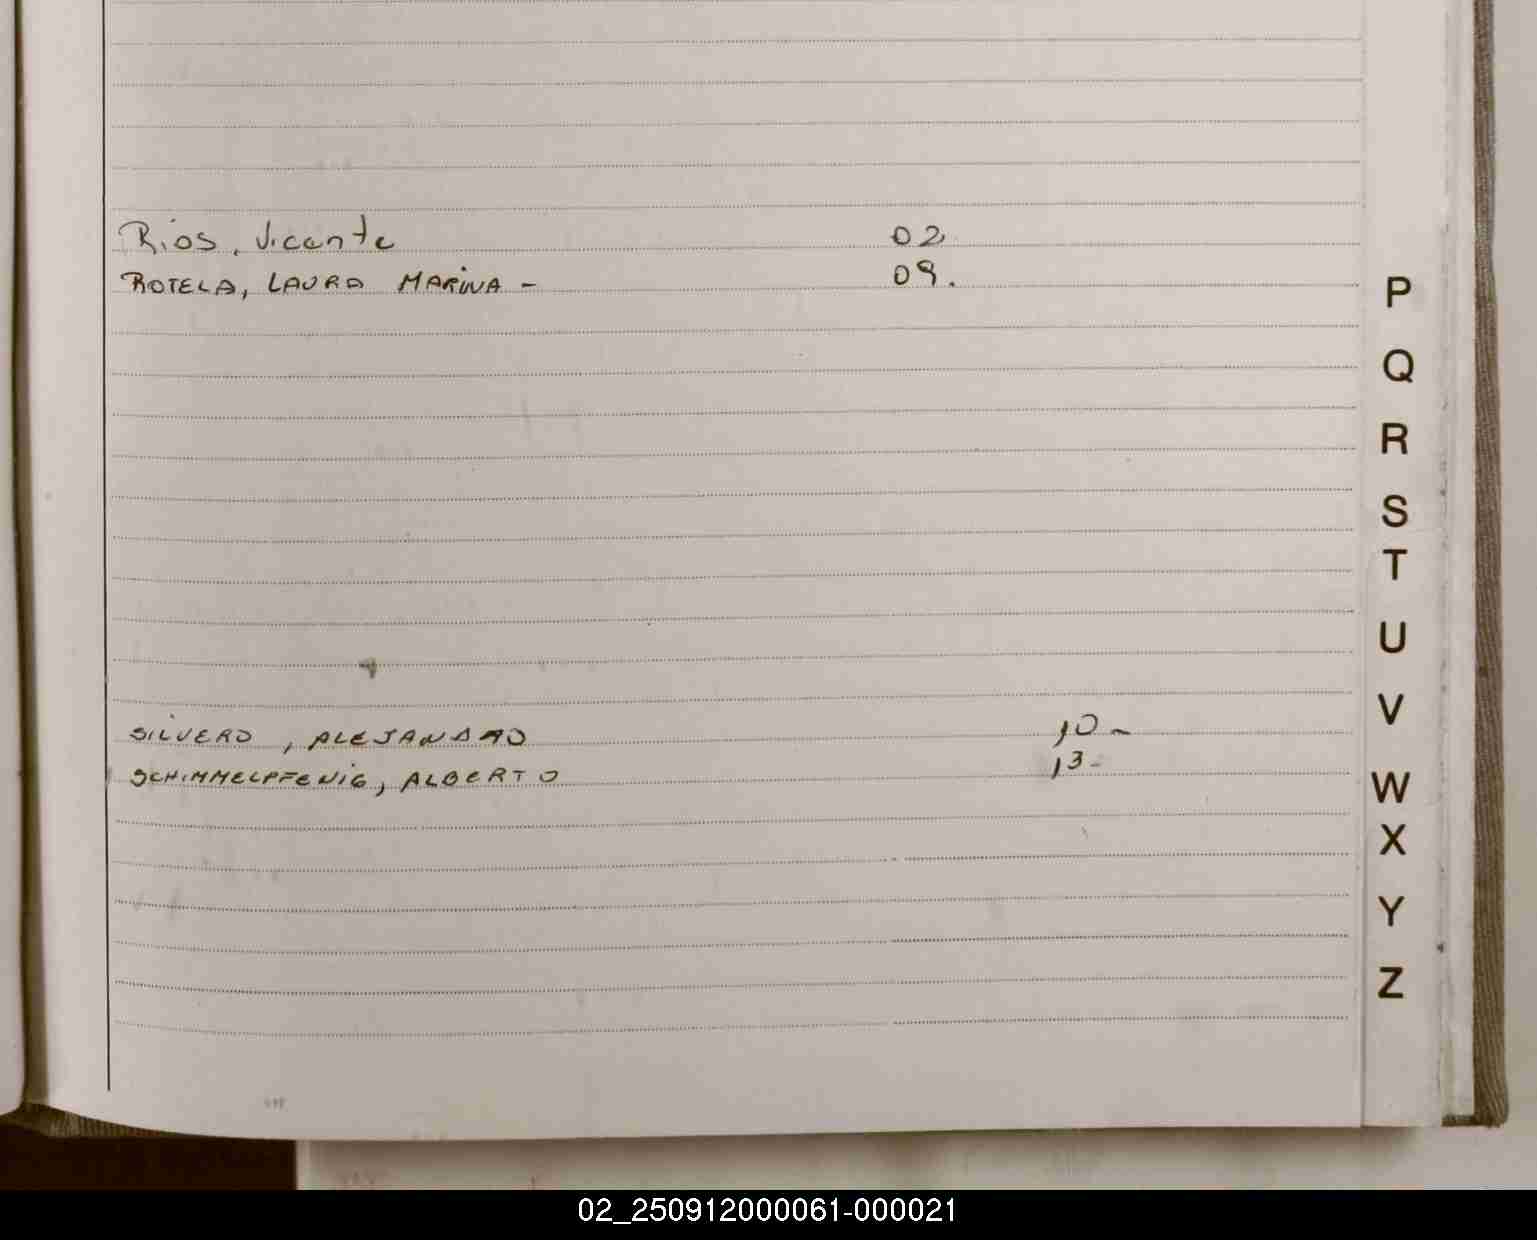 Ríos, Vicente 02
ROTELA, LAURA MARINA - 09.
P
Q
R
S
T
U
V
SILVERO, ALEJANDRO 10-
SCHIMMELPFENIG, ALBERTO 13-
W
X
Y
Z
02_250912000061-000021